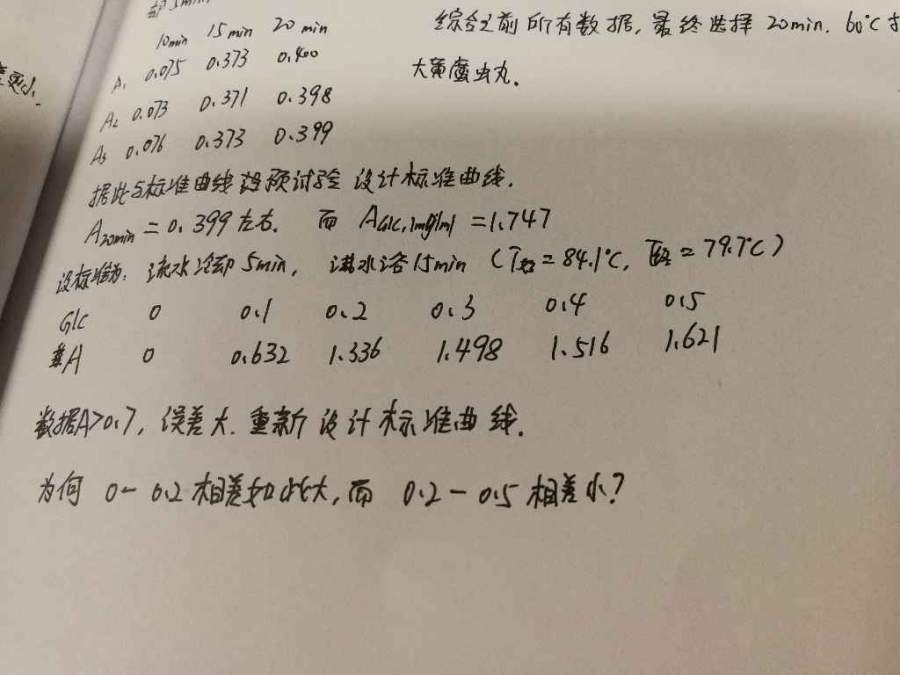 却5min
10min 15min 20min
A₁ 0.075 0.373 0.400
A₂ 0.073 0.371 0.398
A₃ 0.076 0.373 0.399
综合之前所有数据,最终选择 20min. 60℃
大黄䗪虫丸.
据此与标准曲线预试验设计标准曲线.
A20min = 0.399左右. 而 AGlc,1mg/ml = 1.747
设标准为: 流水冷却5min, 沸水浴15min (T始=84.1℃, T终=79.7℃)
Glc 0 0.1 0.2 0.3 0.4 0.5
A 0 0.632 1.336 1.498 1.516 1.621
数据A>0.7, 误差大. 重新设计标准曲线.
为何 0-0.2相差如此大,而 0.2-0.5相差小?